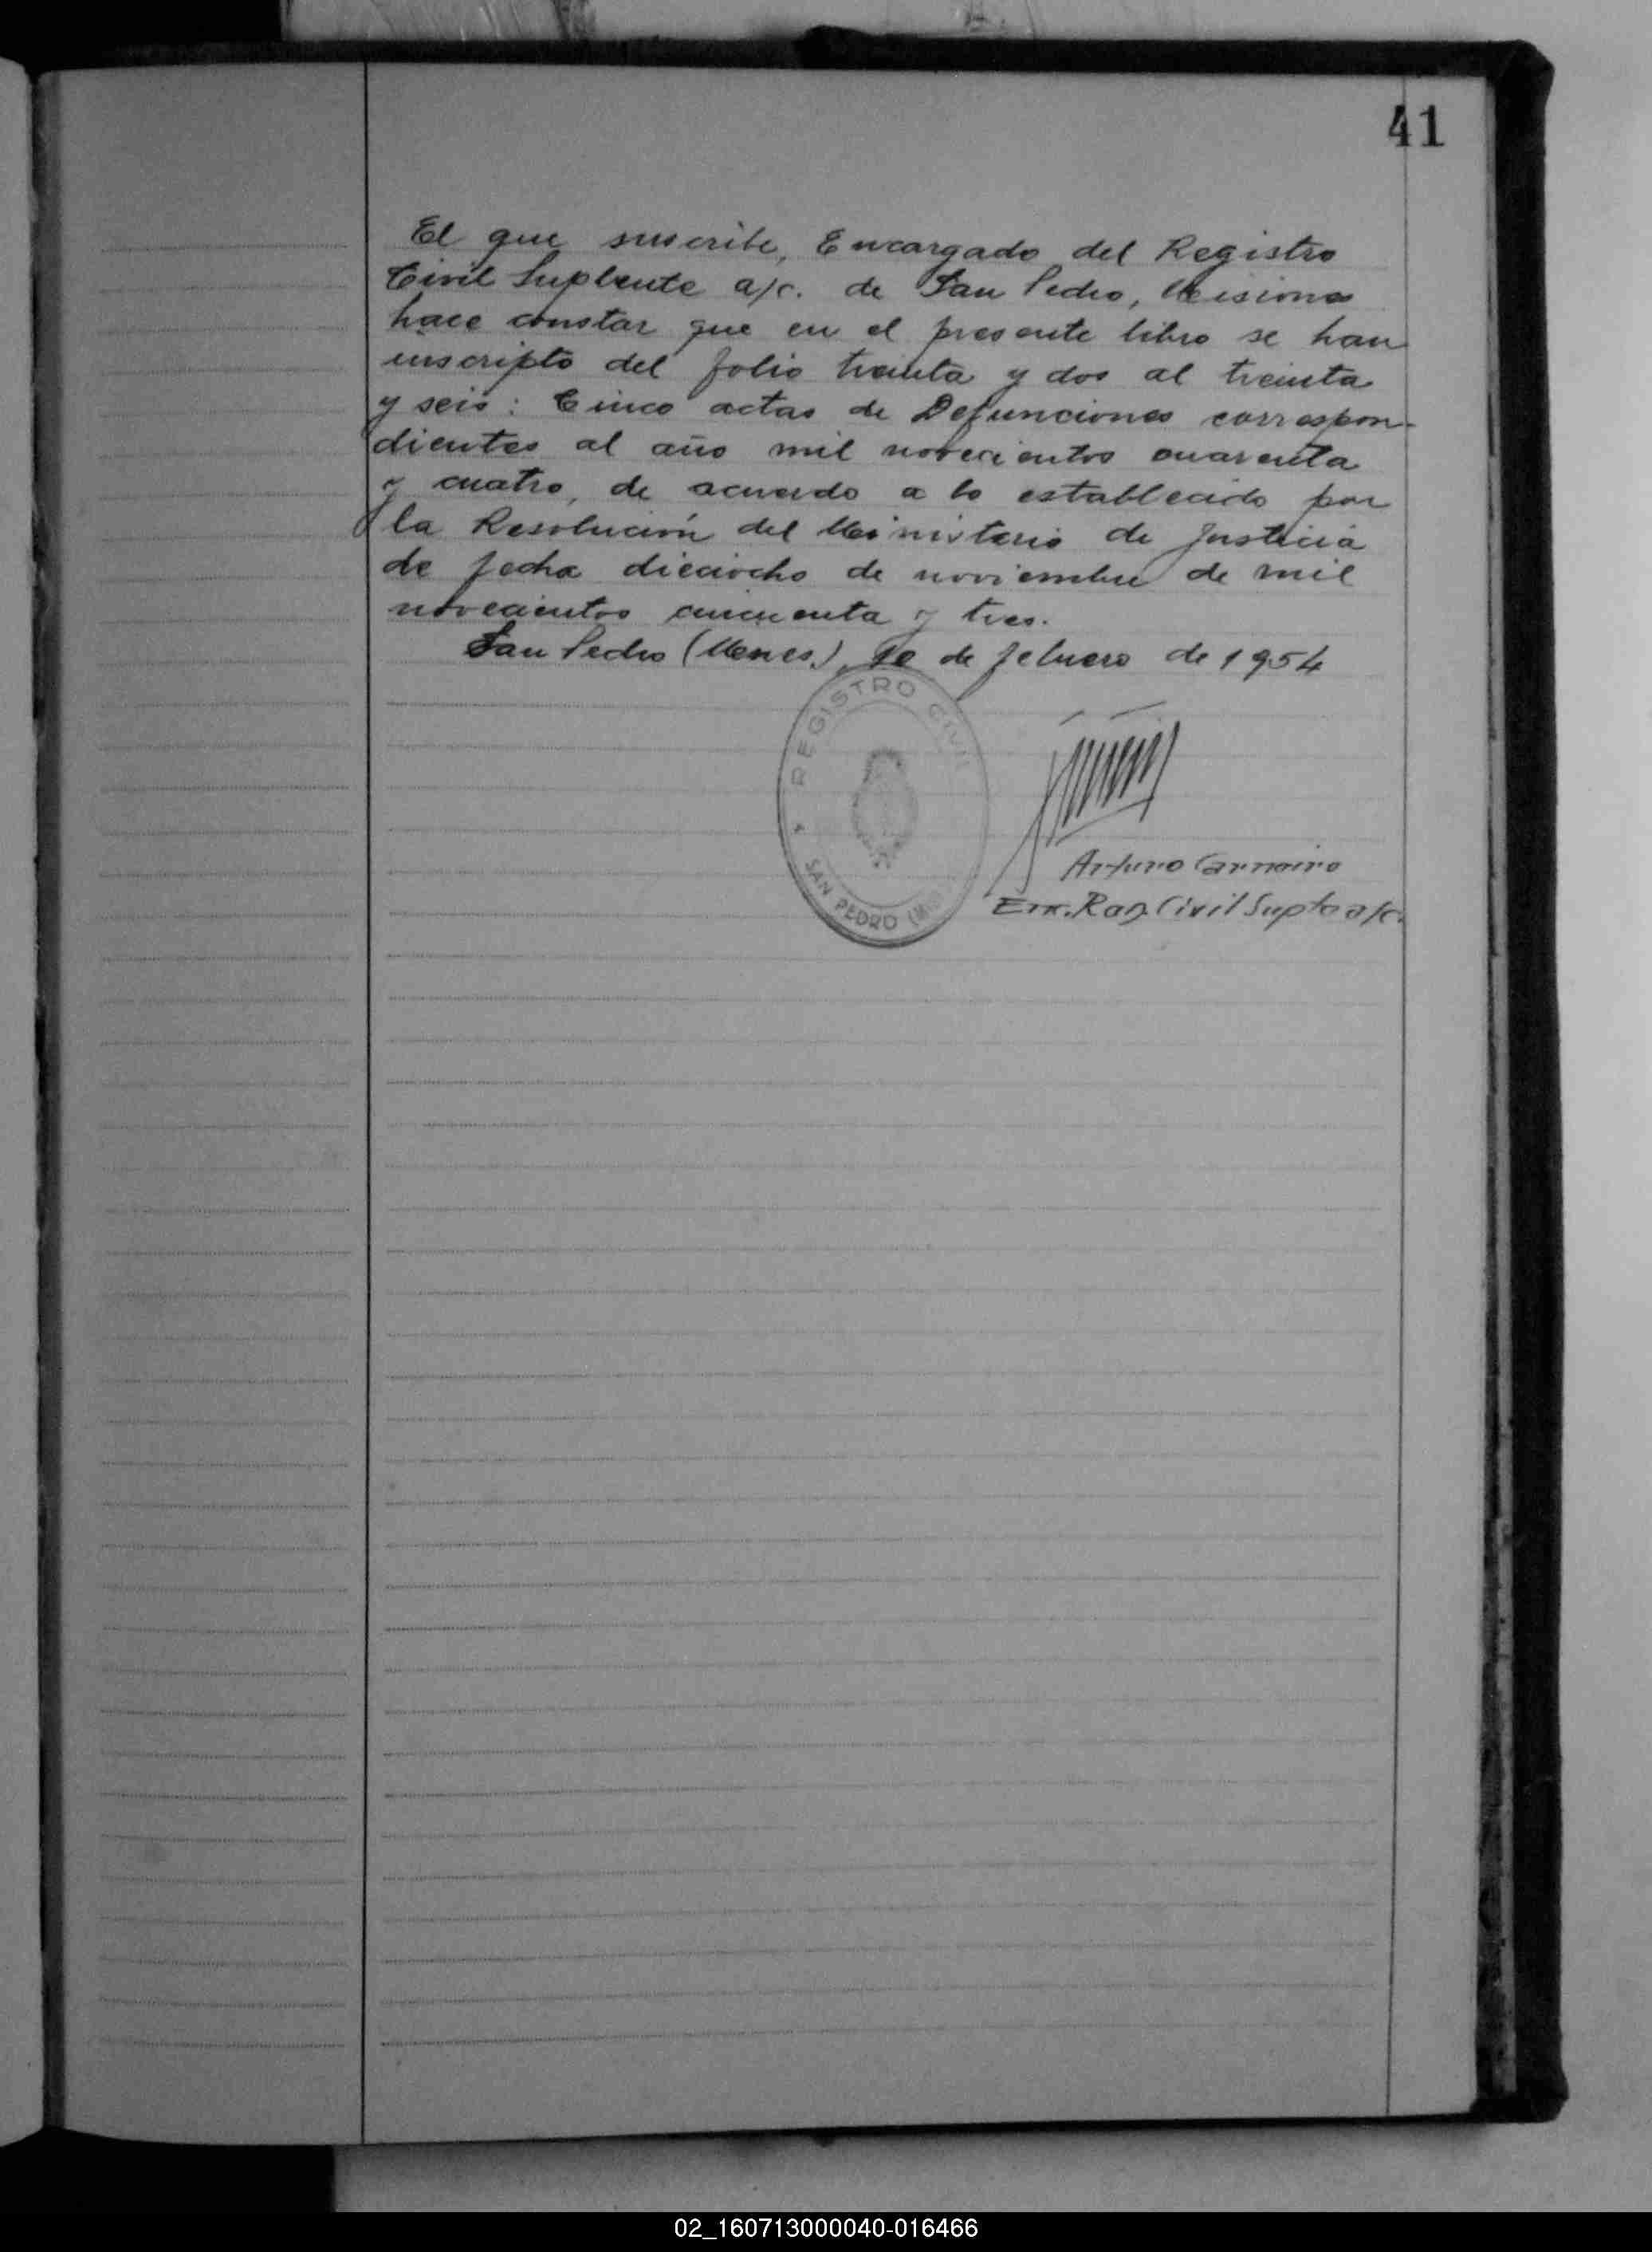 41
El que suscribe, Encargado del Registro
Civil Suplente a/c. de San Pedro, Misiones
hace constar que en el presente libro se han
inscripto del folio treinta y dos al treinta
y seis: Cinco actas de Defunciones correspon-
dientes al año mil novecientos cuarenta
y cuatro, de acuerdo a lo establecido por
la Resolución del Ministerio de Justicia
de fecha dieciocho de noviembre de mil
novecientos cincuenta y tres.
San Pedro (Mnes.), de febrero de 1954
REGISTRO CIVIL
SAN PEDRO
Arturo Carneiro
Enc. Reg. Civil Supte a/c.
02_160713000040-016466